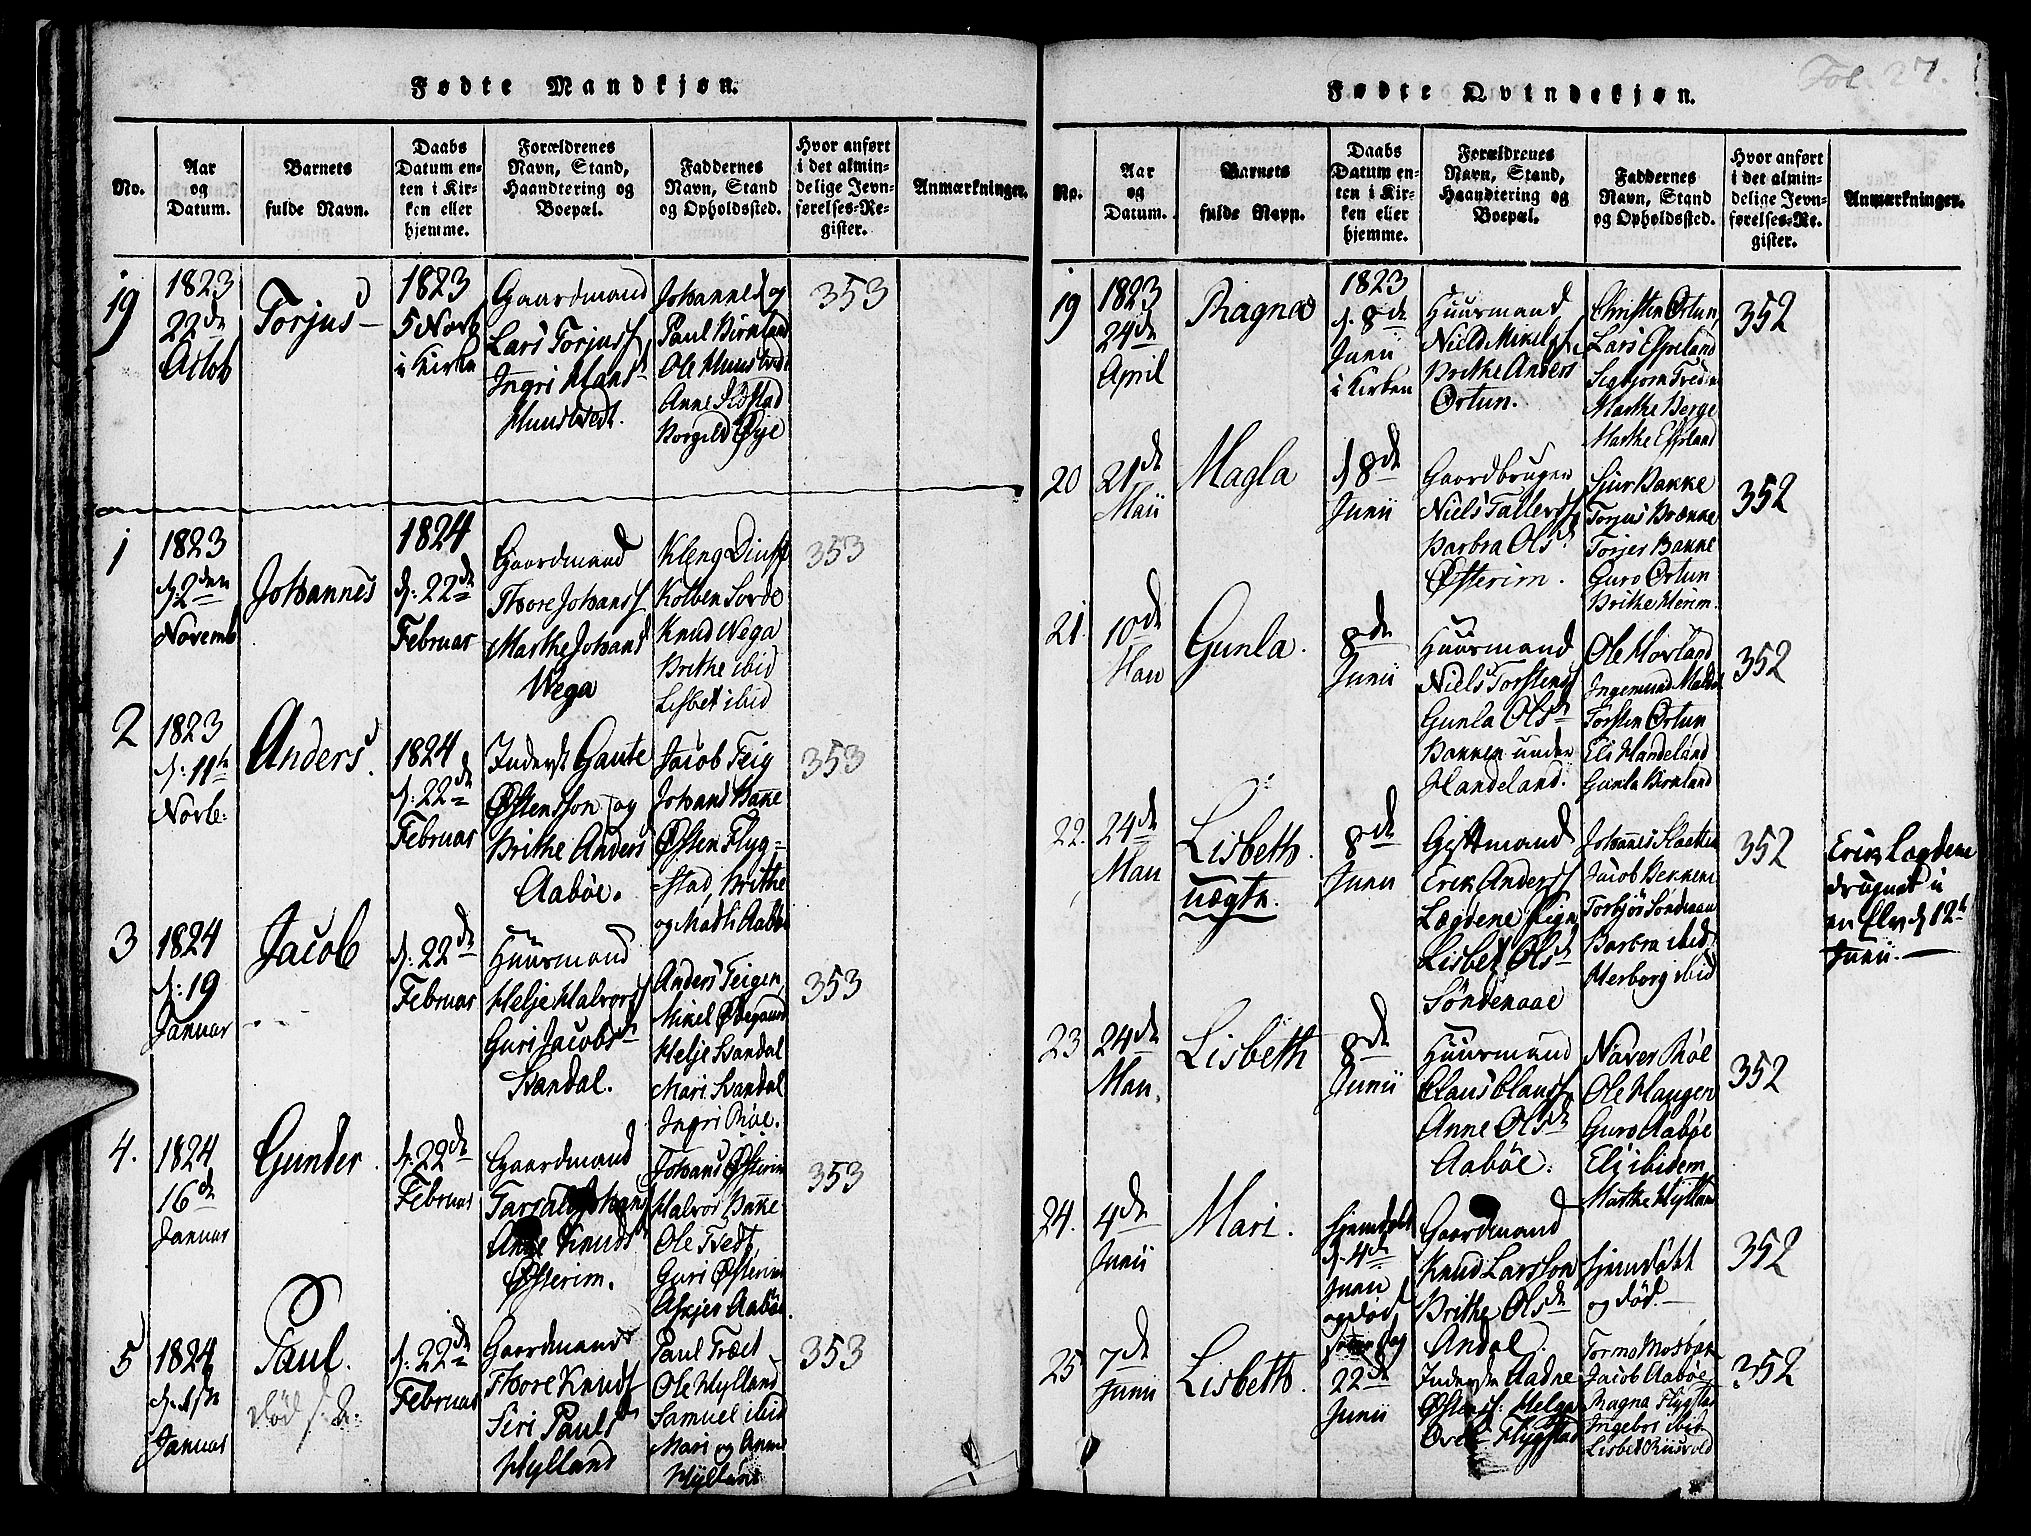 Fødte Mandkjøn.
No.
Aar
og
Datum.
Barnets
fulde Navn.
Daabs
Datum en-
ten i Kir-
ken eller
hjemme.
Forældrenes
Navn, Stand,
Haandtering og
Boepæl.
Faddernes
Navn, Stand
og Opholdssted.
Hvor anført
i det almin-
delige Jevn-
førelses-Re-
gister.
Anmærkninger.
19
1823
22de
Octob
Torjus
1823
5 Novb
i Kirke
Gaardmand
Lars Torjuss
Ingri Hans
Huustvedt.
Johannes og
Paul Birkland
Ole Huustvedt
Anne
Borgild Øye
353
1
1823
d: 2den
Novemb
Johannes
1824
d: 22de
Februar
Gaardmand
Thore Johanss
Marthe Johans
Wega
Kleng Diuss
Kolben Sorde
Knud Wega
Brithe ibid
Lisbet ibid
353
2
1823
d: 11te
Novb:
Anders.
1824
d: 22de
Februar
Inderst Gaute
Østensson og
Brithe Anders
Aabøe.
Jacob Teig
Johans Bakke
Østen Flyg=
=stad, Brithe
og Madli Aabøe
353
3
1824
d: 19
Januar
Jacob
d: 22de
Februar
Huusmand
Helje Halvorss
Guri Jacobsd
Svandal.
Anders Teigen,
Mikel Ødegaard
Helje Svandal
Mari Svandal
Ingri Røe.
353
4.
1824
16de
Januar
Gunder
d: 22de
Februar
Gaardmand
Knuds
Østerim.
Johans Østerim
Halvor Bakke
Ole Tvedt,
Guri Østerim
Askjer Aabøe.
353
5
1824
d. 1ste
Januar
Paul.
død
d: 22de
Februar
Gaardmand
Thore Knuds
Siri Pauls
Hylland
Paul Træet
Ole Hylland
Samuel ibid
Mari og Anne
Hylland
353
Fol. 27.
Fødte Qvindekjøn.
No.
Aar
og
Datum.
Barnets
fulde Navn.
Daabs
Datum en-
ten i Kir-
ken eller
hjemme.
Forældrenes
Navn, Stand,
Haandtering og
Boepæl.
Faddernes
Navn, Stand
og Opholdssted.
Hvor anført
i det almin-
delige Jevn-
førelses-Re-
gister.
Anmærkninger.
19
1823
24de
April
Ragna
1823
d. 8de
Junii
i Kirken
Huusmand
Niels Mikelss
Brithe Anders
Ørtun.
Christen Ørtun,
Lars Espeland
Sigbjorn
Marthe Berge
Marthe Espeland
352
20
21de
Maii
Magla
d 8de
Junii
Gaardbruger
Niels Tallerss
Barbra Olsd
Østerim.
Siur Bakke
Torjus Brække
Torjer Bakke
Guro Ørtun
Brithe Herim.
352
21.
10de
Maii
Gunla.
8de
Junii
Huusmand
Niels Torstens
Gunla Olsd
Bakken under
Handeland.
Ole Hovland
Ingemund
Torsten Ørtun
Eli Handeland
Gunla Birkland
352
22.
24de
Maii
Lisbeth.
uægte.
8de
Junii
Giftmand
Erik Anderss
Lægdene, Pigen
Lisbet Olsd
Søndenaae
Johannes Slaatten
Jacob Bekkene
Torbjør Søndenaa
Barbra ibid
Herborg ibid
352
Erik Lægdene
d 12
Junii.
23
24de
Maii.
Lisbeth
8de
Junii
Huusmand
Claus Clauss
Anne Olsd
Aabøe.
Naver Røe
Ole Haugen
Guro Aabøe
Eli ibidem
Marthe Hylland
352
24.
4de
Junii
Mari.
hjemdøbt
d. 4de
Junii
og død
Gaardmand
Knud Larsson
Brithe Olsd
Andal.
hjemdøbt
og død.
352
25
7de
Junii
Lisbeth.
22de
Junii
Inderste Aadne
Østens: Helga
Flygstad
Jacob Aabøe,
Ragna Flygstad
Ingebor ibid
Lisbet
352